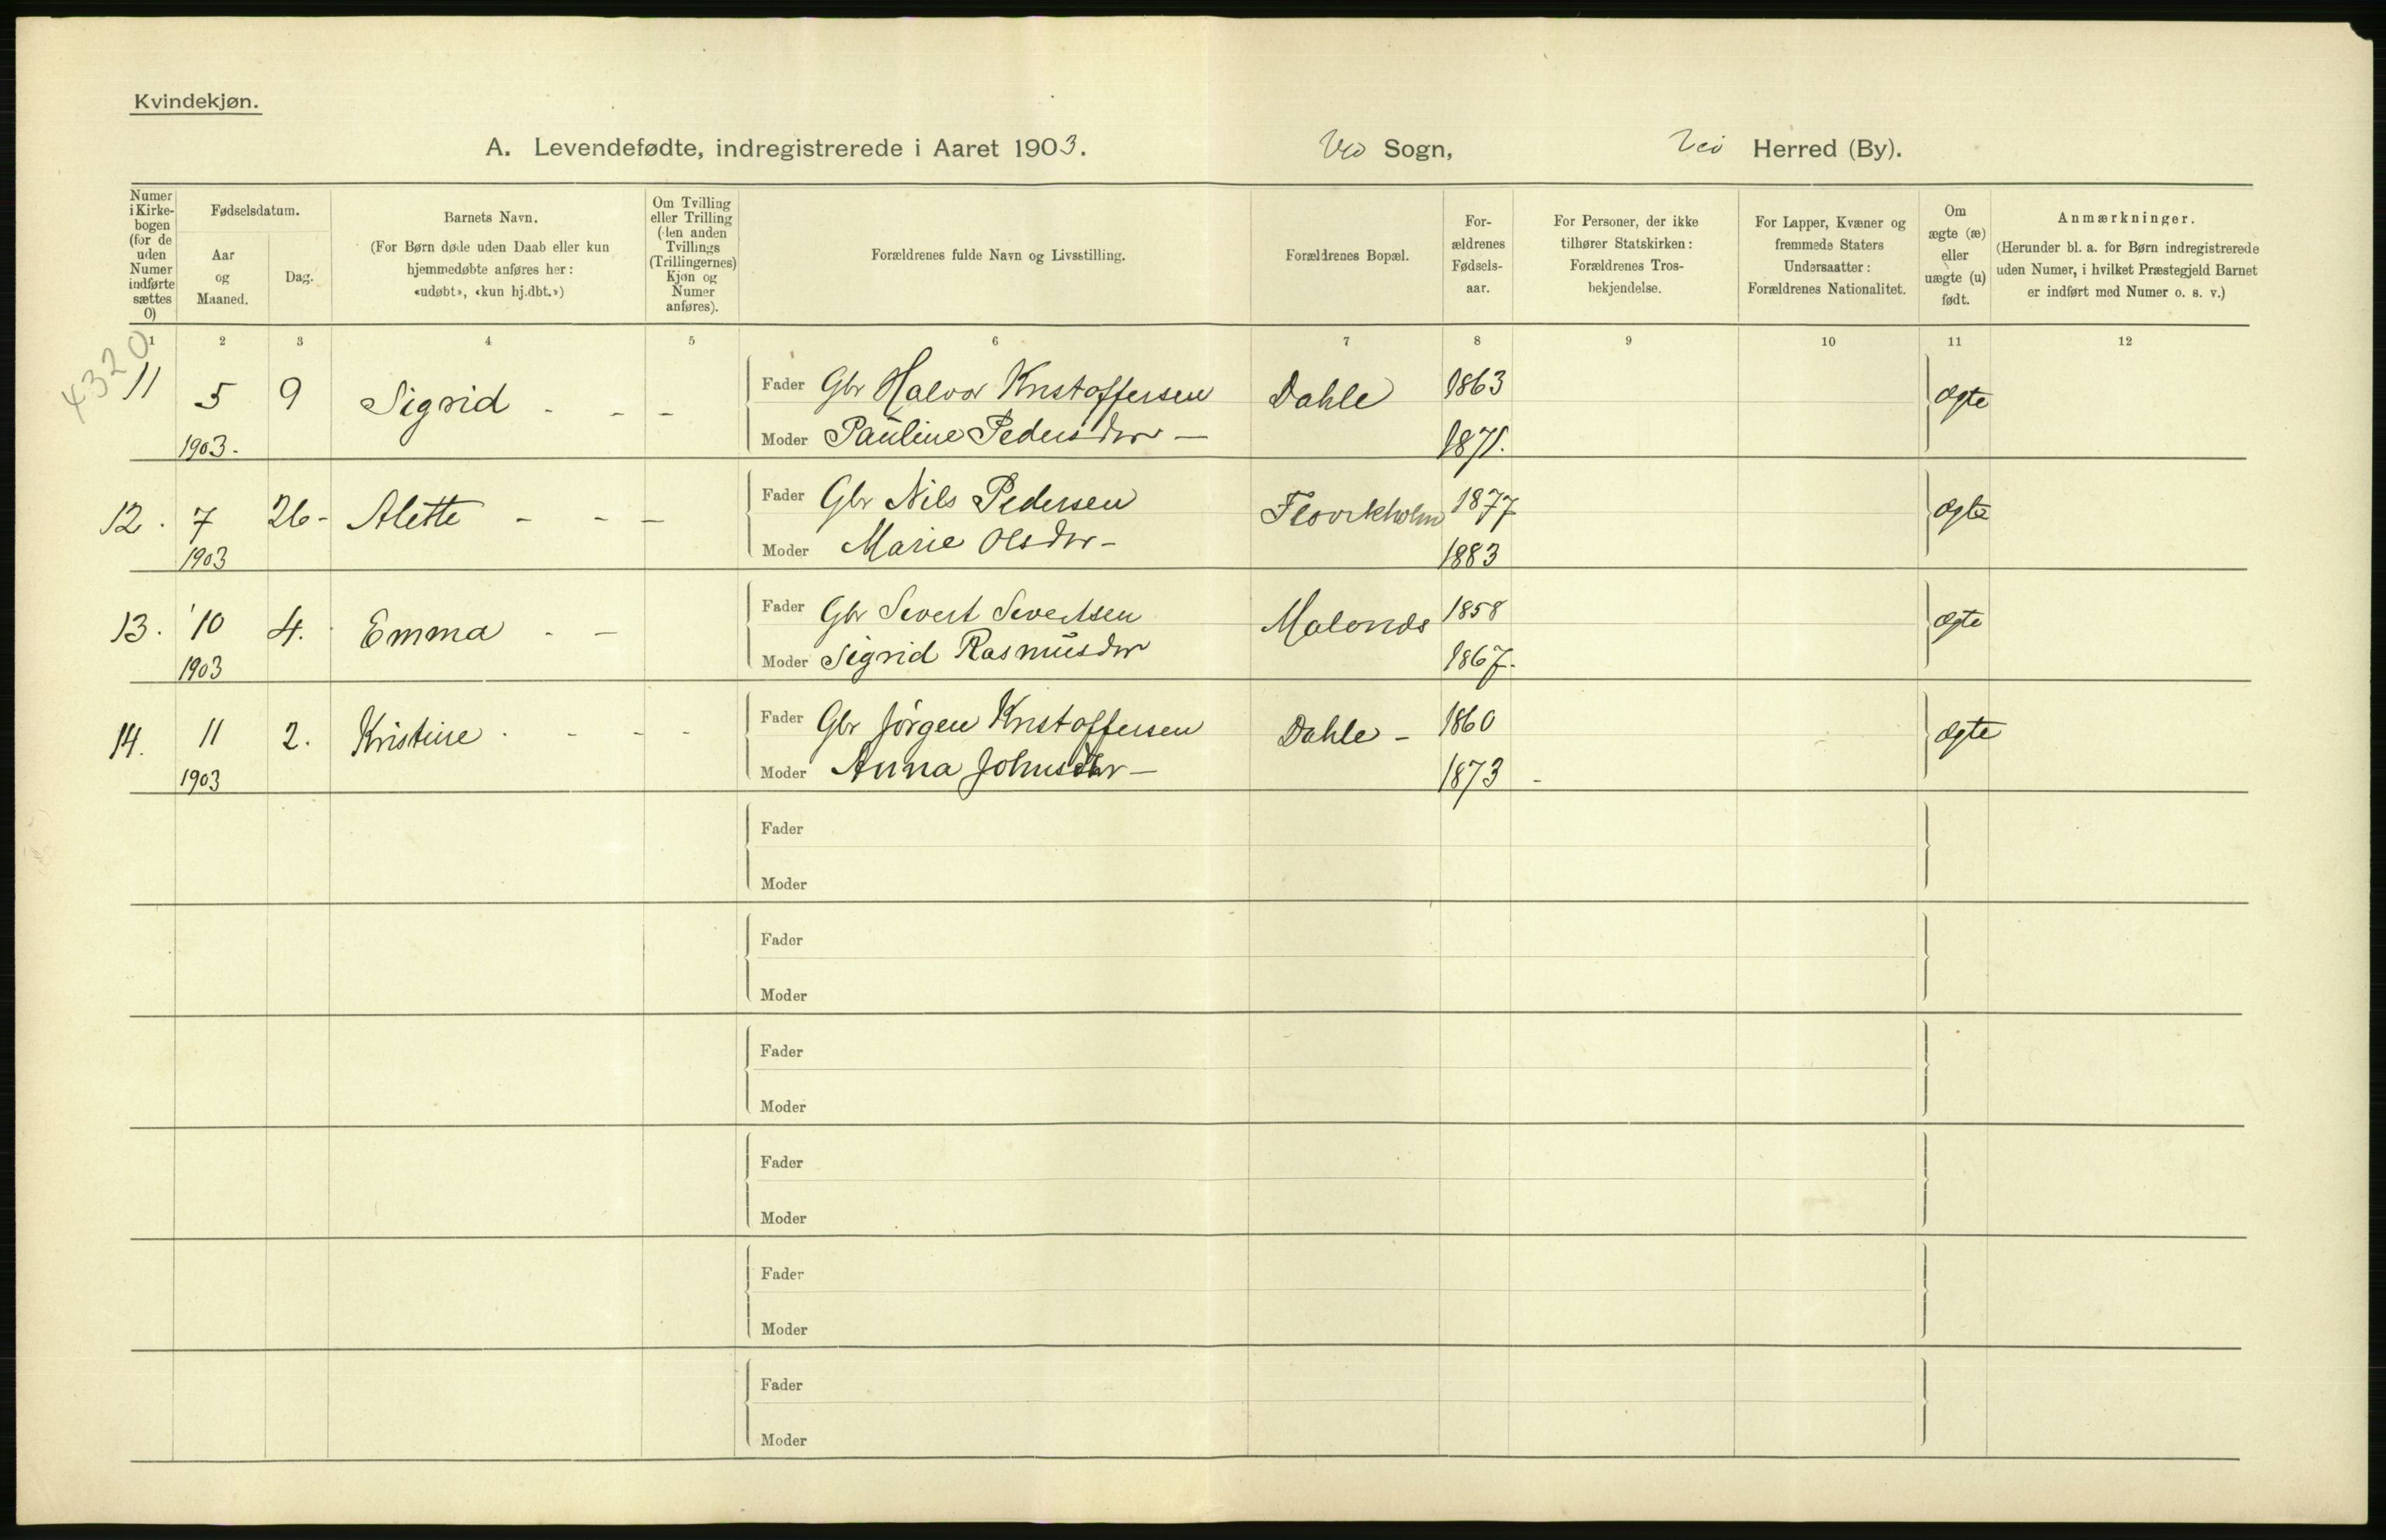 Kvindekjøn.
A. Levendefødte, indregistrerede i Aaret 1903. Veø Sogn, Veø Herred (By).
Numer i Kirkebogen (for de uden Numer indførte sættes 0)
Fødselsdatum.
Aar og Maaned.
Dag.
Barnets Navn.
(For Børn døde uden Daab eller kun hjemmedøbte anføres her: «udøbt», «kun hj.dbt.»)
Om Tvilling eller Trilling (den anden Tvillings (Trillingernes) Kjøn og Numer anføres).
Forældrenes fulde Navn og Livsstilling.
Forældrenes Bopæl.
Forældrenes Fødselsaar.
For Personer, der ikke tilhører Statskirken: Forældrenes Trosbekjendelse.
For Lapper, Kvæner og fremmede Staters Undersaatter: Forældrenes Nationalitet.
Om ægte (æ) eller uægte (u) født.
Anmærkninger.
(Herunder bl. a. for Børn indregistrerede uden Numer, i hvilket Præstegjeld Barnet er indført med Numer o. s. v.)
1 2 3 4 5 6 7 8 9 10 11 12
4320
11 5 9 Sigrid - - - Fader Gbr Halvor Kristoffersen Dahle 1863 ægte
1903. Moder Pauline Pedersdtr - 1871.
12. 7 26- Alette - - - Fader Gbr Nils Pedersen 1877 ægte
1903 Moder Marie Olsdtr - 1883
13. 10 4. Emma - - Fader Gbr Sivert Sivertsen 1858 ægte
1903 Moder Sigrid Rasmusdtr 1867.
14. 11 2. Kristine - - - - Fader Gbr Jörgen Kristoffersen Dahle - 1860 ægte
1903 Moder Anna Johnsdtr - 1873 -
Fader
Moder
Fader
Moder
Fader
Moder
Fader
Moder
Fader
Moder
Fader
Moder